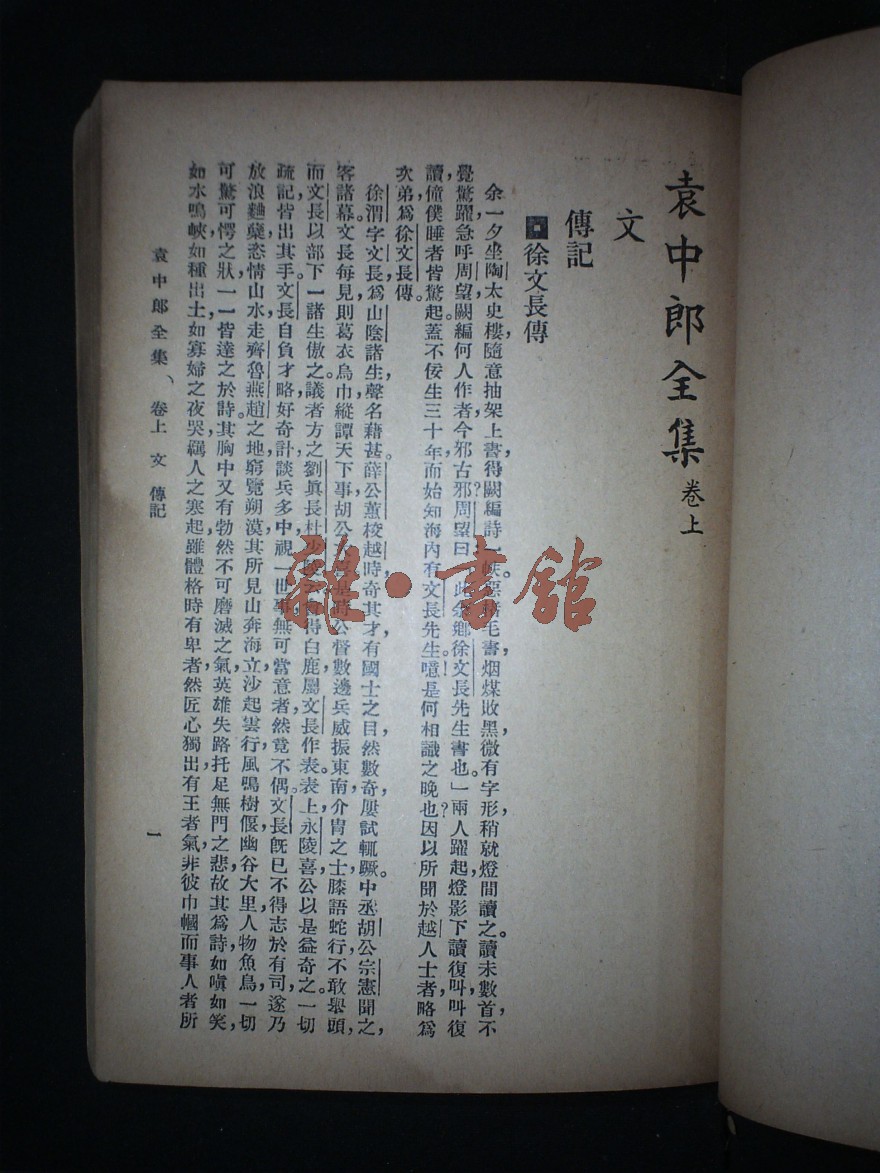 袁中郎全集 卷上
文
傳記
徐文長傳
余一夕坐陶太史樓，隨意抽架上書，得闕編詩一帙，惡楮毛書，烟煤敗黑，微有字形，稍就燈間讀之。讀未數首，不
覺驚躍，急呼周望：闕編何人作者？今邪古邪？周望曰：「此余鄉徐文長先生書也」兩人躍起，燈影下讀復叫，叫復
讀，僮僕睡者皆驚起。蓋不佞生三十年，而始知海內有文長先生。噫！是何相識之晚也？因以所聞於越人士者，略爲
次第，爲徐文長傳。
徐渭，字文長，爲山陰諸生，聲名藉甚。薛公蕙校越時，奇其才，有國士之目，然數奇，屢試輒蹶。中丞胡公宗憲聞之，
客諸幕。文長每見，則葛衣烏巾，縱譚天下事，胡公 是時公督數邊兵，威振東南，介胄之士，膝語蛇行，不敢舉頭，
而文長以部下一諸生傲之，議者方之劉眞長杜少陵 得白鹿，屬文長作表，表上，永陵喜。公以是益奇之，一切
疏記，皆出其手。文長自負才略，好奇計，談兵多中，視一世事無可當意者，然竟不偶。文長旣已不得志於有司，遂乃
放浪麯糵，恣情山水，走齊魯燕趙之地，窮覽朔漠，其所見山奔海立，沙起雲行，風鳴樹偃，幽谷大里，人物魚鳥，一切
可驚可愕之狀，一一皆達之於詩。其胸中又有勃然不可磨滅之氣，英雄失路托足無門之悲，故其爲詩，如嗔如笑，
如水鳴峽，如種出土，如寡婦之夜哭，羈人之寒起，雖體格時有卑者，然匠心獨出，有王者氣，非彼巾幗而事人者所
袁中郎全集、 卷上 文 傳記 一
雜·書館